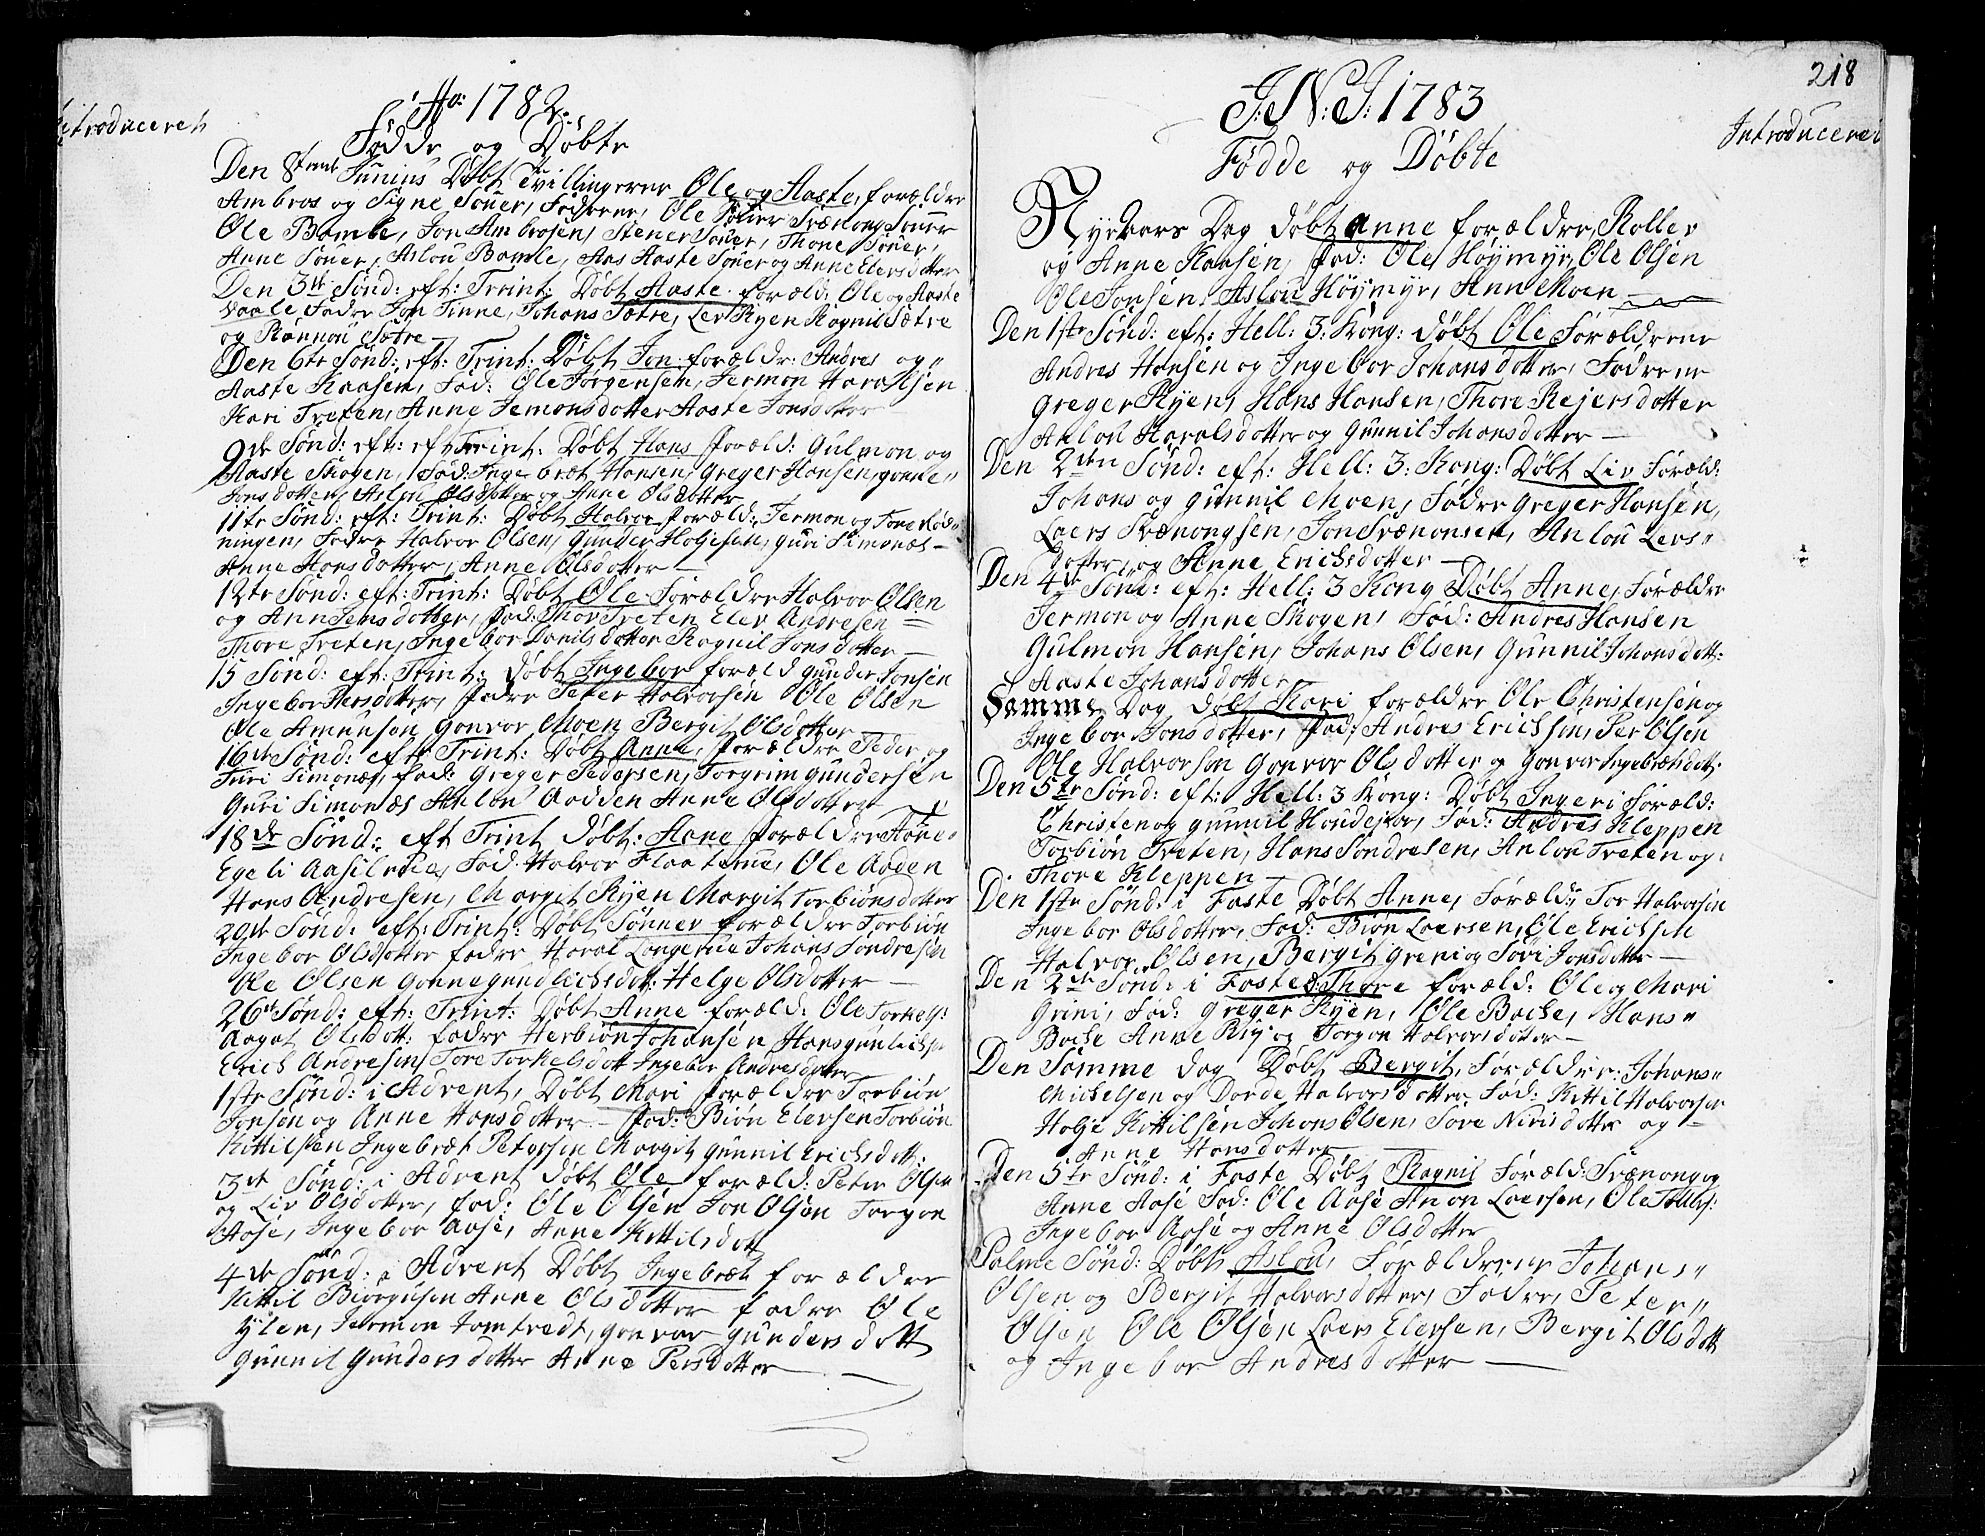 Introduceret
Ao: 1782.
Födde og Döbte
Den 8tende Junius Döbt Tvillingerne Ole og Aaste, forældre
Ambros og Signe Söuer, Fadderne, Ole Söuer Svænong Söuer
Ole Bamle, Jon Ambrosen, Stener Söuer, Thone Söuer,
Anne Söuer, Aslou Bamle, Aas Aaste Söuer og Anne Elersdotter
Den 3de Sönd: eft: Trint: Döbt Aaste foræld: Ole og Aaste
Daale, Fadre Jon Tinne, Johans Sætre, Lev Ryen Ragnil Sætre
og Rönnou Sætre
Den 6te Sönd: eft: Trint: Döbt Jon forældr: Andres og
Aaste Kaasen, Fad: Ole Jörgensen, Jermon Haralsen
Kari Treten, Anne Jemonsdotter Aaste Jonsdotter
9de Sönd: eft: Trint: Döbt Hans foræld: Gulmon og
Aaste Skogen, Fad: Ingebræt Hansen, Greger Hansen, gonle
Jonsdotter, Aslou Olsdotter og Anne Olsdotter
11te Sönd: eft: Trint: Döbt Halvor foræld: Jermon og Tone Röd-
ningen, Fadre Halvor Olsen, Gunder Holjesen, guri Simonæs
Anne Hansdotter, Anne Olsdotter
12te Sönd: eft: Trint: Döbt Ole Forældre Halvor Olsen
og Ann Jensdotter, Fad: Thor Treten Elev Andresen
Thore Treten, Ingebor Danilsdotter Ragnil Jonsdotter
15 Sönd: eft: Trint: Döbt Ingebor foræld gunder Jonsen
Ingebor Persdotter, Fadre Peter Halvorsen Ole Olsen
Ole Amunsen Gonvor Moen Bergit Olsdotter
16de Sönd: eft: Trint: Döbt Anne, forældre Peder og
Turi Simonæs, fad: Greger Pedersen, Torgrim gundersen
Guri Simonæs Anlou Aadden Anne Olsdotter
18de Sönd: eft Trint Döbt: Anne forældre
Egeli Fad: Halvor Ole Aaden
Hans Andresen, Margit Ryen Margit Torbiönsdotter
20de Sönd: eft: Trint: Döbt Sönnev forældre Torbiön
Ingebor Olsdotter fadre Haral Langemie Johans Söndresen
Ole Olsen Helge Olsdotter
26de Sönd: eft: Trint: Döbt Anne foræld: Ole Torkels:
Aagot Olsdott: fadre Herbiön Johansen Hans
Erich Andresen Tore Torkelsdott Ingebor Andresdotter
1ste Sönd: i Advent, Döbt Mari forældre Torbiön
Jonsen og Anne Hansdotter Fad: Biön Elersen Torbiön
Kittilssen Ingebræt Petersen Margit gunnil Erichsdott:
3de Sönd: i Advent döbt Ole foræld: Peter Olsen
og Liv Olsdotter, fad: Ole Olsen Jon Olsen Torgon
Aase, Ingebor Aase, Anne Kittilsdott
4de Sönd: i Advent Döbt Ingebræt forældre
Kittil Biörgusen Anne Olsdotter fadre Ole
Ylen, Jermon Tomtredt, gonvor gundersdott
Gunnil Gundersdotter Anne Persdotter
218
J: N: J: 1783
Introduceret
Födde og Döbte
NyeAars Dag Döbt anne forældre, Rollev
og Anne Kaasen, Fad: Ole Höymyr, Ole Olsen
Ole Jonsen, Aslou Höymyr, Ann Moen
Den 1ste Sönd: eft: Hell: 3: Kong: döbt Ole Forældrene
Andres Hansen og Ingebor Johansdotter, Fadrene
Greger Ryen, Hans Hansen, Thore Rejersdotter
Anlou Haralsdotter og Gunnil Johansdotter
Den 2den Sönd: eft: Hell: 3: Kong: Döbt Liv Foræld:
Johans og gunnil Moen, Fadre Greger Hansen,
Laers Svænongsen, Jon Svænonsen, Anlou Lers
dotter, og Anne Erichsdotter
Den 4de Sönd: eft: Hell: 3 Kong Döbt Anne, Forældre
Jermon og Anne Skogen, Fad: Andres Hansen
Gulmon Hansen, Johans Olsen, Gunnil Johansdott:
Aaste Johansdotter
Samme Dag döbt Kari forældre Ole Christensen og
Ingebor Jonsdotter, Fad: Andres Erichsen, Per Olsen
Ole Halvorsen Gonvor Olsdotter og Gonvor Ingebrætsdott:
Den 5te Sönd: eft: Hell: 3 Kong: Döbt Ingeri Foræld:
Christen og gunnil Houdejor, Fad: Andres Kleppen
Torbiön Treten, Hans Söndresen, Anlou Treten og
Thore Kleppen
Den 1ste Sönd: i Faste Döbt Anne, Foræld: Tor Halvorsen
Ingebor Olsdotter, Fad: Biön Laersen, Ole Erichsen
Halvor Olsen, Bergit Greni og Siri Jonsdotter
Den 2de Sönd: i Faste d: Thore foræld: Ole og Mari
Grini, Fad: Greger Ryen, Ole Backe, Hans
Backe Anne Riy og Torgon Halvorsdotter
Den Samme dag Döbt Bergit, Forældre: Johans
Michelsen og Dorde Halvorsdotter Fad: Kittil Halvorsen
Holje Kittilsen Johans Olsen, Söre Nirisdotter og
Anne Hansdotter
Den 5te Sönd: i Faste Döbt Ragnil Foræld: Svænong og
Anne Aase Fad: Ole Aase Anon Laersen, Ole
Ingebor Aase og Anne Olsdotter
Palme Sönd: Döbt Aslou, Forældrene Johans
Olsen og Bergit Halvorsdotter, Fadre, Peter
Olsen Ole Olsen Laers Elersen, Bergit Olsdott
og Ingebor Andresdotter